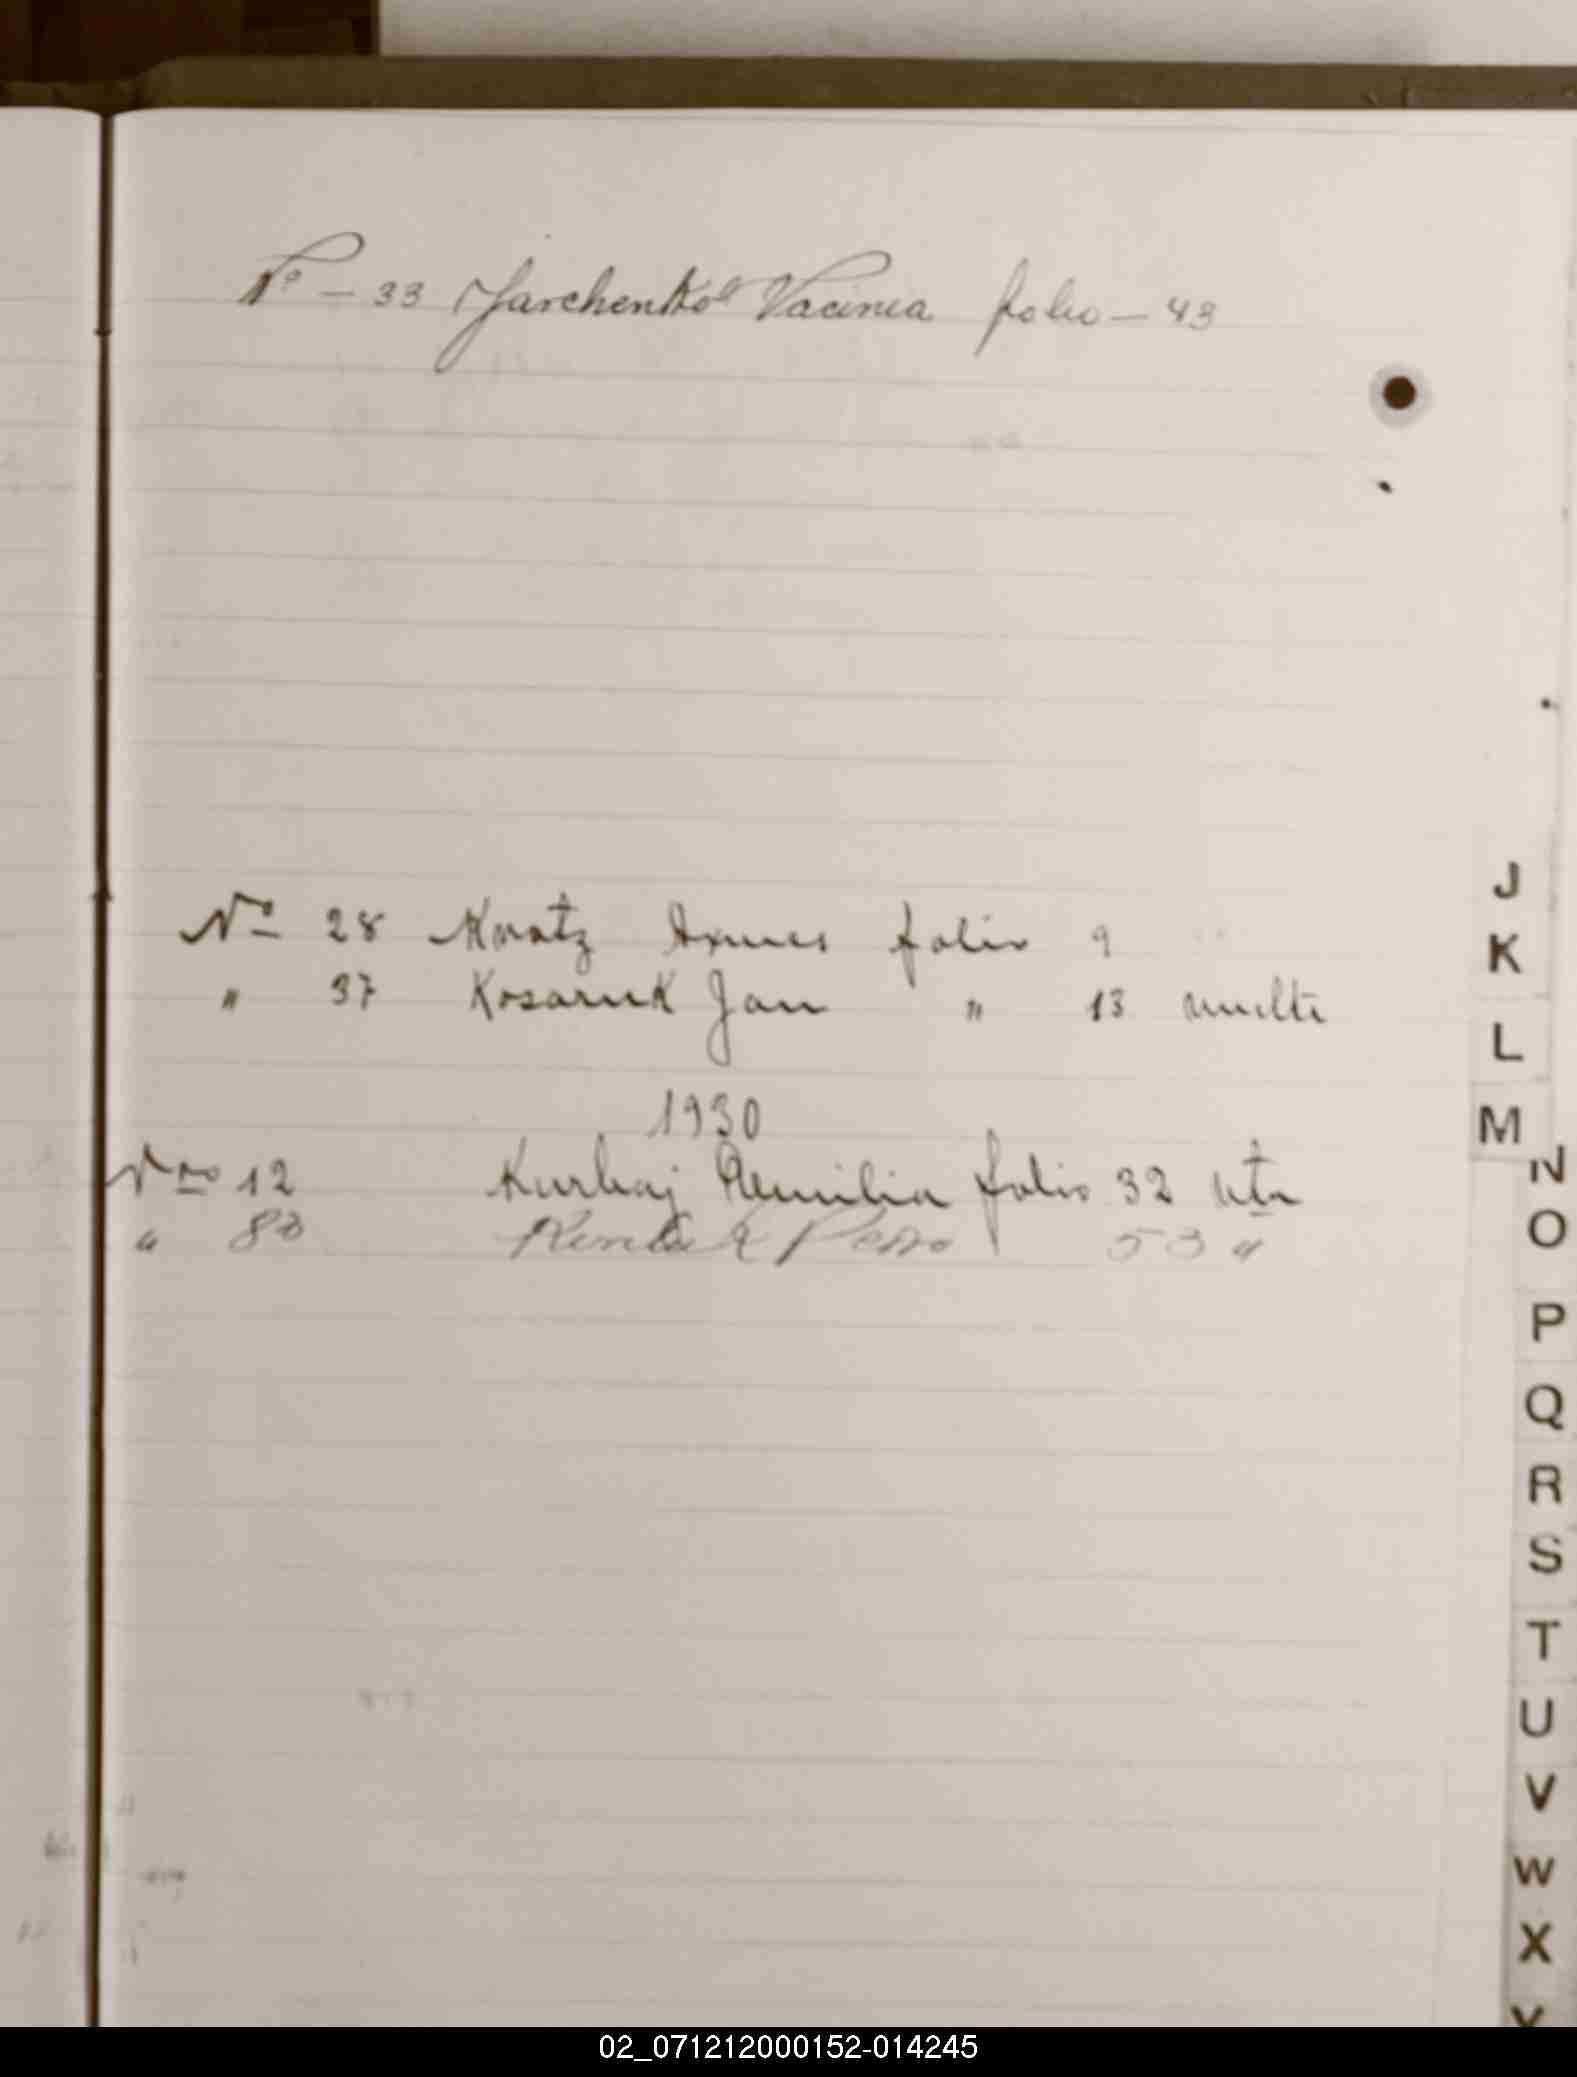 Nº - 33 Jarchenko Vacinia folio - 43
Nº 28 folio 9
" 37 Kosaruk Jan " 13 multa
1930
Nro 12 Kurhaj Aemilia folio 32 vta
" 83 Pedro 53 "
J
K
L
M
N
O
P
Q
R
S
T
U
V
W
X
Y
02_071212000152-014245